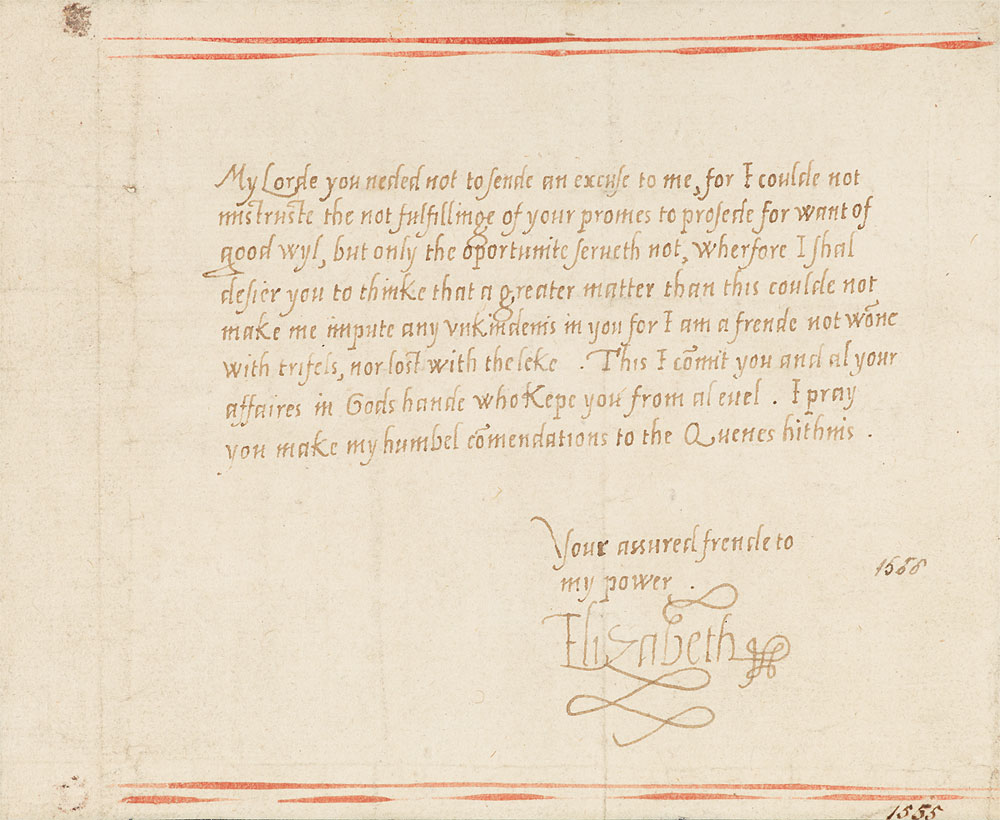 My Lorde you neded not to sende an excuse to me, for I coulde not
mistruste the not fulfillinge of your promes to prosede for want of
good wyl, but only the oportunite serveth not, wherfore I shal
desier you to thinke that a greater matter than this coulde not
make me impute any vnkindenis in you for I am a frende not wõne
with trifels, nor lost with the leke . This I cõmit you and al your
affaires in Gods hande who kepe you from al euel . I pray
you make my humbel cõmendations to the Quenes hithnis .
Your assured frende to
my power .
1558
Elizabeth
1555